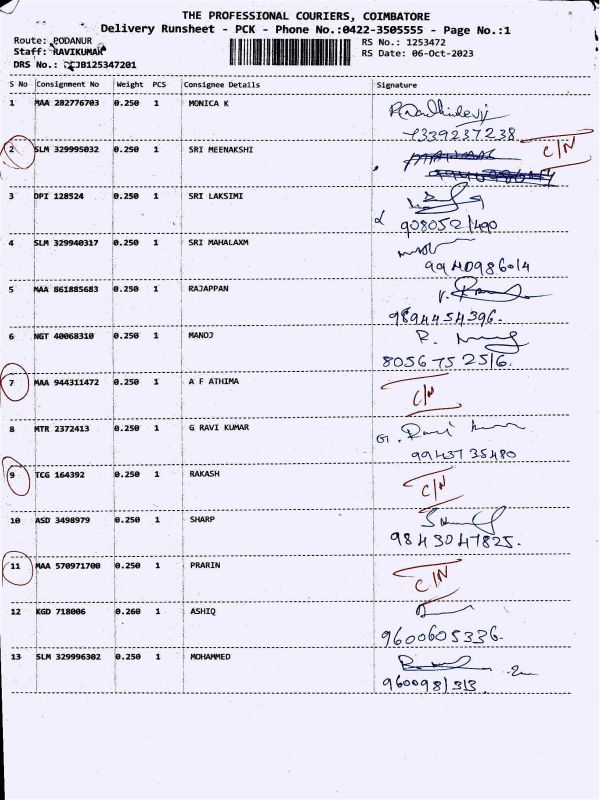 THE PROFESSIONAL COURIERS, COIMBATORE
Delivery Runsheet - PCK - Phone No.:0422-3505555 - Page No.:1
Route: PODANUR
RS No.: 1253472
Staff: RAVIKUMAR
RS Date: 06-Oct-2023
DRS No.: JB125347201
S No Consignment No Weight PCS Consignee Details Signature
1 MAA 282776703 0.250 1 MONICA K
7339237238
2 SLM 329995032 0.250 1 SRI MEENAKSHI C/N
3 DPI 128524 0.250 1 SRI LAKSIMI
9080521490
4 SLM 329940317 0.250 1 SRI MAHALAXM
9940986014
5 MAA 861885683 0.250 1 RAJAPPAN
9894454396.
6 NGT 40068310 0.250 1 MANOJ
8056752516.
7 MAA 944311472 0.250 1 A F ATHIMA C/N
8 MTR 2372413 0.250 1 G RAVI KUMAR G. Ravi Kumar
9943735480
9 TCG 164392 0.250 1 RAKASH C/N
10 ASD 3498979 0.250 1 SHARP
9843047825.
11 MAA 570971700 0.250 1 PRARIN C/N
12 KGD 718006 0.260 1 ASHIQ
9600605336.
13 SLM 329996302 0.250 1 MOHAMMED
9600981313